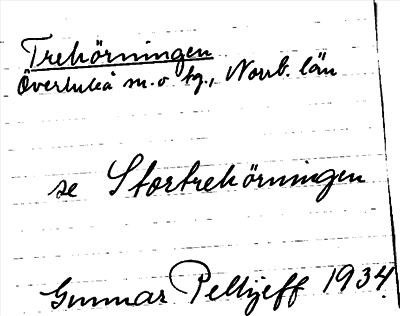 Trehörningen
Överluleå sn. o. tg., Norrb. län
se Stortrehörningen
Gunnar Pellijeff 1934.